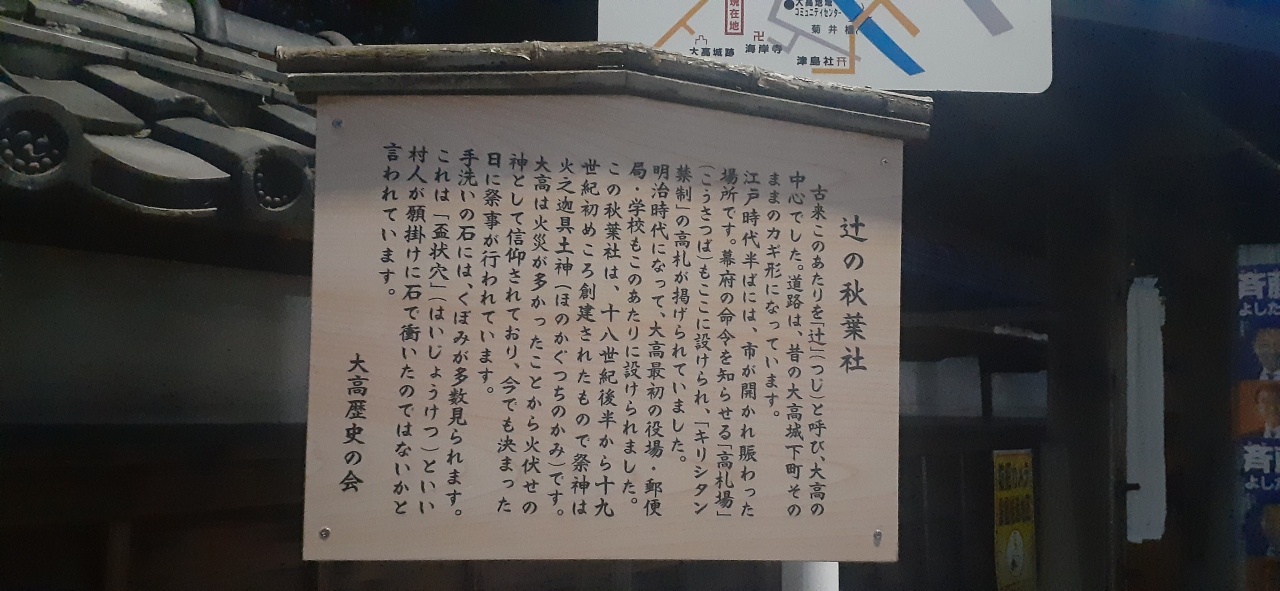 辻の秋葉社
古来このあたりを「辻」(つじ)と呼び、大高の
中心でした。道路は、昔の大高城下町その
ままのカギ形になっています。
江戸時代半ばには、市が開かれ賑わった
場所です。幕府の命令を知らせる「高札場」
(こうさつば)もここに設けられ、「キリシタン
禁制」の高札が掲げられていました。
明治時代になって、大高最初の役場・郵便
局・学校もこのあたりに設けられました。
この秋葉社は、十八世紀後半から十九
世紀初めころ創建されたもので祭神は
火之迦具土神(ほのかぐつちのかみ)です。
大高は火災が多かったことから火伏せの
神として信仰されており、今でも決まった
日に祭事が行われています。
手洗いの石には、くぼみが多数見られます。
これは「盃状穴」(はいじょうけつ)といい
村人が願掛けに石で衝いたのではないかと
言われています。
大高歴史の会
現在地
大高城跡
海岸寺
津島社
コミュニティセンター
菊井橋
斉藤
よした
斉藤
よした